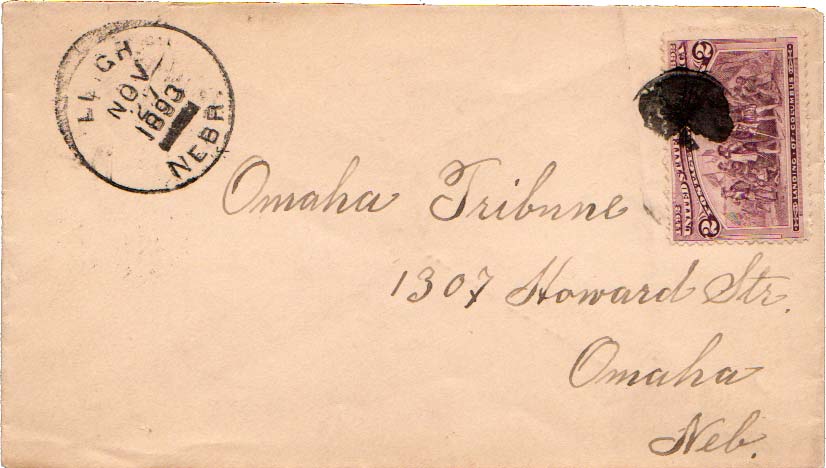 LEIGH
NOV
1893
NEBR.
2 2
LANDING OF COLUMBUS
Omaha Tribune
1307 Howard Str.
Omaha
Neb.